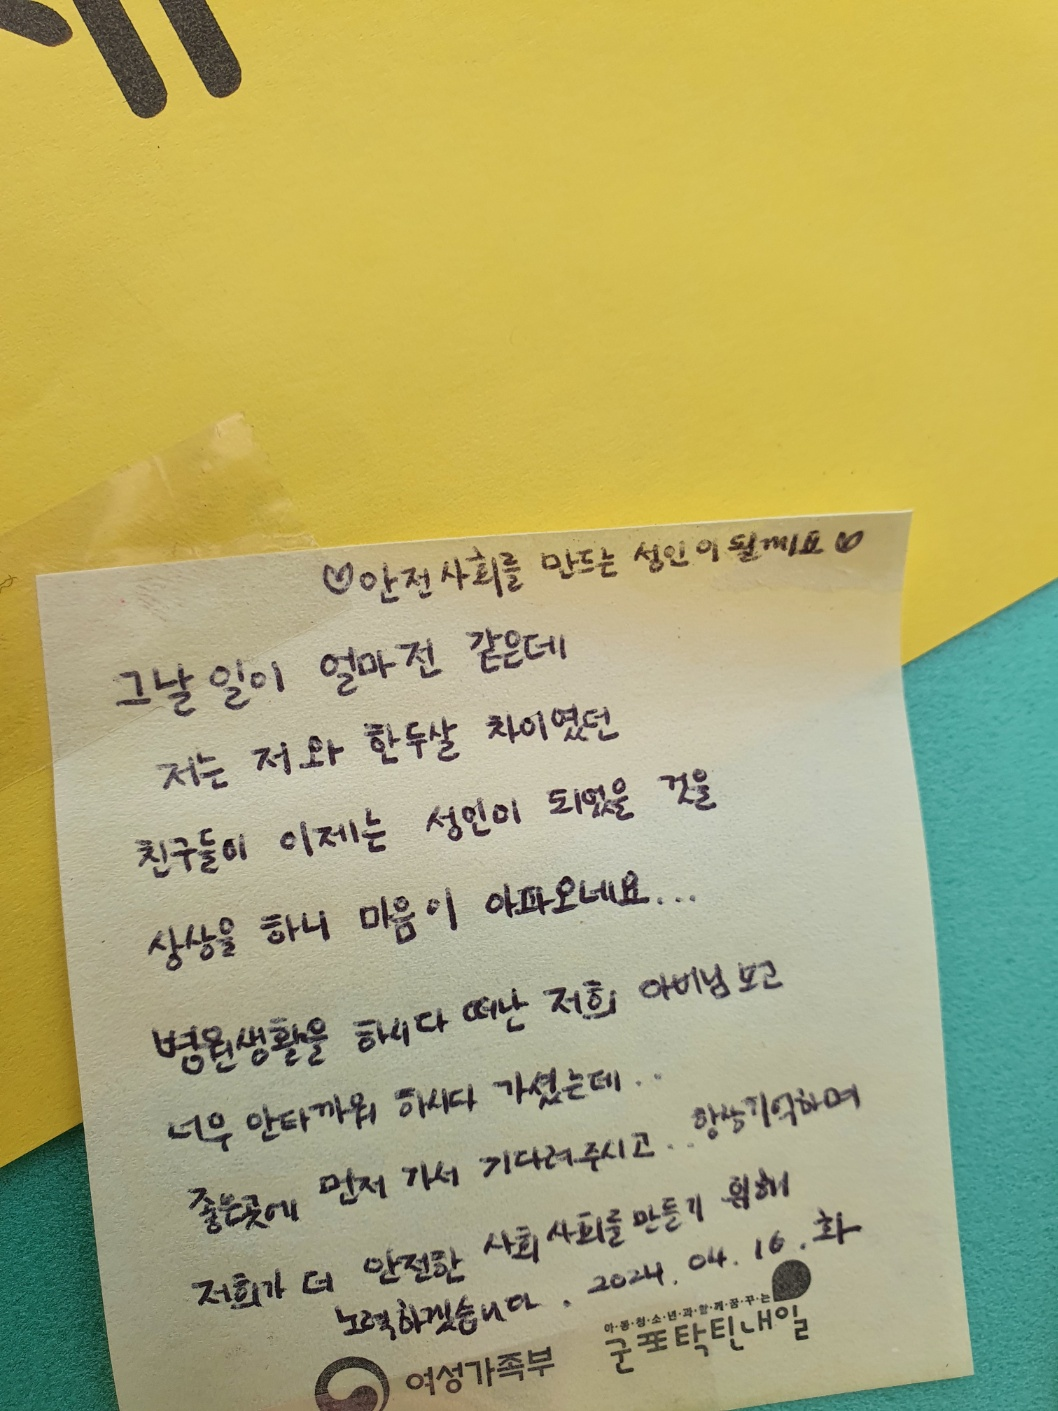 ♡안전사회를 만드는 성인이 될께요
그날 일이 얼마전 같은데
저는 저와 한두살 차이였던
친구들이 이제는 성인이 되었을 것을
상상을 하니 마음이 아파오네요...
병원생활을 하시다 떠난 저희 아버님 보고
너무 안타까워 하시다 가셨는데..
좋은곳에 먼저 가서 기다려주시고.. 항상기억하며
저희가 더 안전한 사회 사회를 만들기 위해
노력하겠습니다. 2024. 04. 16. 화
여성가족부
아·동·청·소·년·과·함·께·꿈·꾸·는
군포탁틴내일